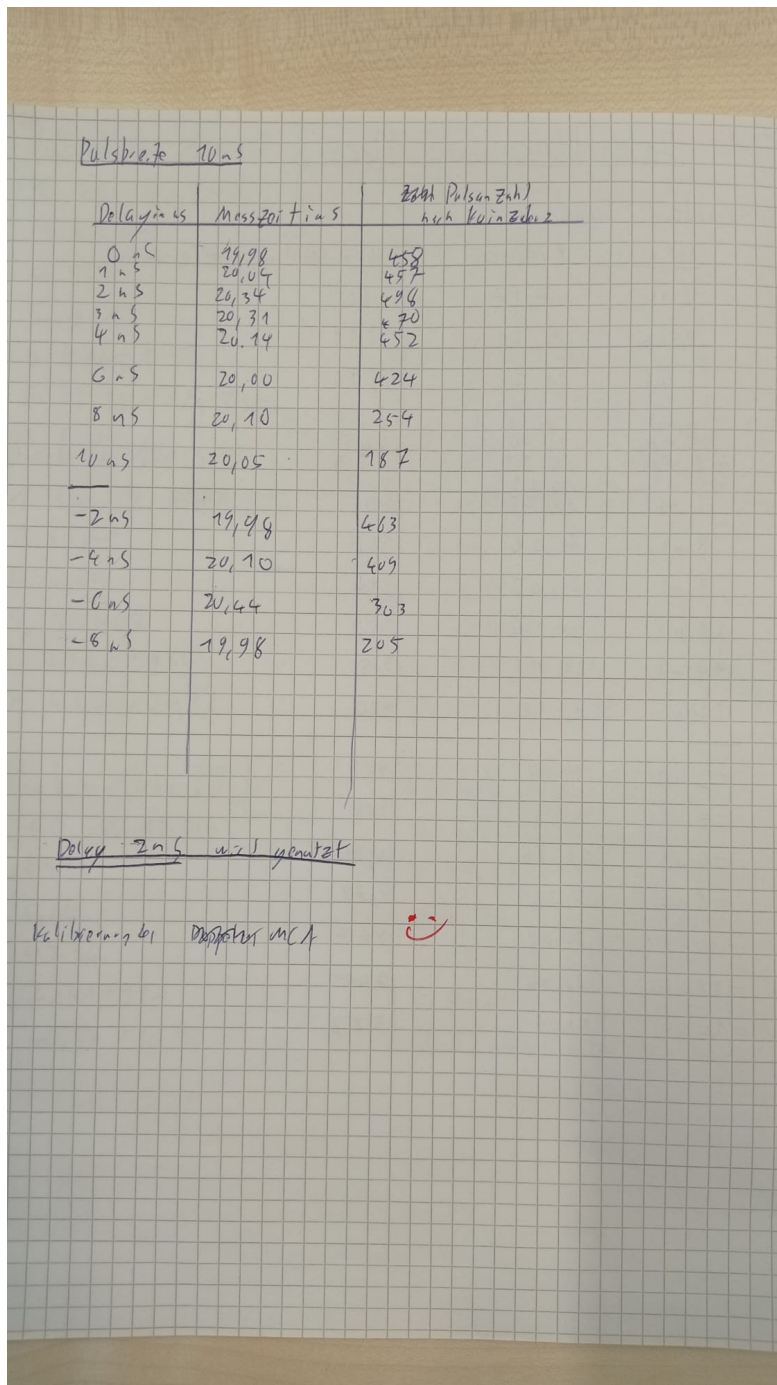 Pulsbreite 10 nS
Pulsanzahl
Delay in ns Messzeit in s nach Koinzidenz
0 nS 19,98 458
1 nS 20,04 457
2 nS 20,34 498
3 nS 20,31 470
4 nS 20.14 452
6 nS 20,00 424
8 nS 20,10 254
10 nS 20,05 187
-2 nS 19,98 463
-4 nS 20,10 409
-6 nS 20,44 303
-8 nS 19,98 205
Delay 2nS wird genutzt
Kalibrierung des MCA